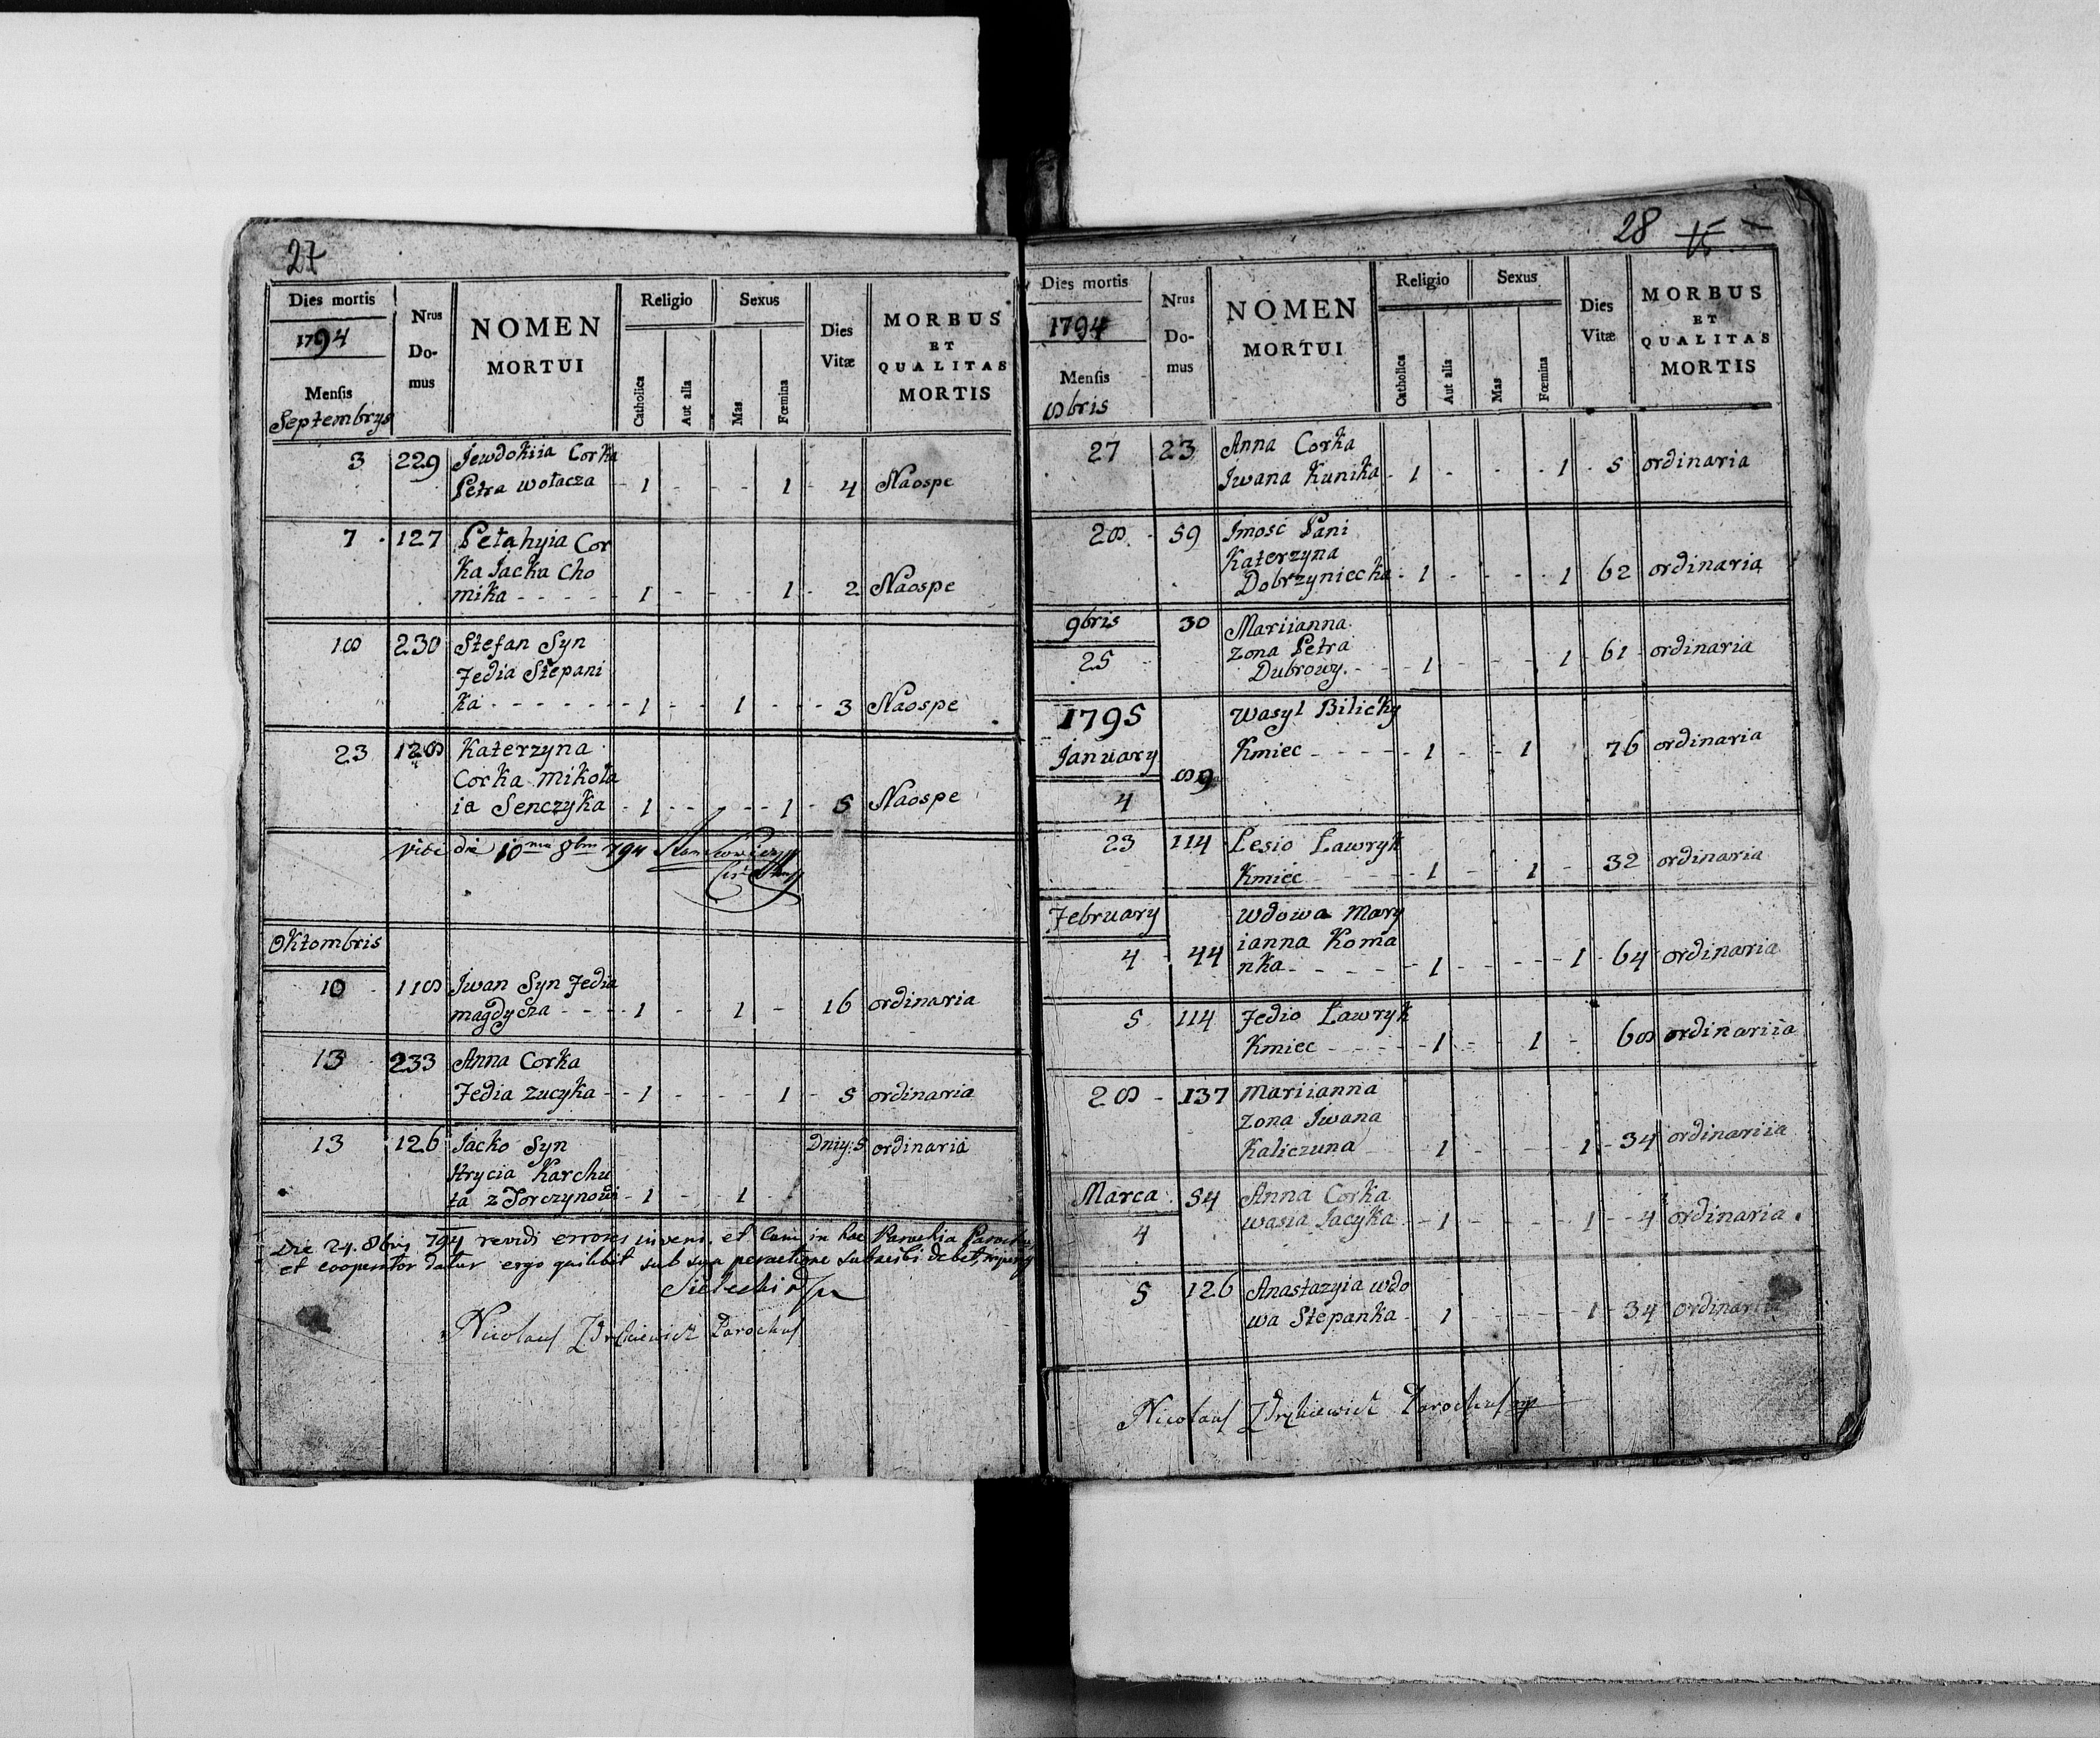 27
Dies mortis
1794
Mensis
Septembrys
Nrus
Do-
mus
NOMEN
MORTUI
Religio
Catholica
Aut alia
Sexus
Mas
Fœmina
Dies
Vitæ
MORBUS
ET
QUALITAS
MORTIS
3 229 Jewdokiia Corka
Petra wołacza - 1 - - - 1 - 4 Naospe
7 127 Pełahyia Cor
ka Jacka Cho
mika - - - - - 1 - - - 1 - 2 Naospe
18 230 Stefan Syn
Fedia Stepani
ka - - - - - - 1 - - 1 - - - 3 Naospe
23 128 Katerzyna
Corka Mikoła
ia Senczyka - 1 - - - - 1 - 5 Naospe
die 10ma 8bris 794
Oktombris
10 118 Jwan Syn Fedia
magdycza - - - - 1 - - 1 - 16 ordinaria
13 233 Anna Corka
Fedia zucyka - - 1 - - - - 1 - 5 ordinaria
13 126 Jacko Syn
Hrycia Karchu
ta z Torczynowi - 1 - - 1 - Dniy: 5 ordinaria
Die 24. 8bris 794 revidi errores inveni, et Cum in hac Parochia Parochus
et cooperator datur ergo quilibet sub sua peractione subscribi debet,
Nicolaus Parochus
28 15
Dies mortis
1794
Mensis
8bris
Nrus
Do-
mus
NOMEN
MORTUI
Religio
Catholica
Aut alia
Sexus
Mas
Fœmina
Dies
Vitæ
MORBUS
ET
QUALITAS
MORTIS
27 23 Anna Corka
Jwana Kunika - 1 - - - 1 - 5 ordinaria
28 59 Jmosć Pani
Katerzyna
Dobrzyniecka - 1 - - - 1 62 ordinaria
9bris 30 Mariianna
25 zona Petra
Dubrowy. - - - 1 - - - 1 - 61 - ordinaria
1795 Wasyl Bilicky
January 89 Kmiec - - - - - 1 - - 1 76 ordinaria
4
23 114 Lesio Ławryk
Kmiec - - - - 1 - 1 - 32 ordinaria
February Wdowa Mary
4 44 ianna Koma
nka - - - - - 1 - - - - 1 - 64 ordinaria
5 114 Fedio Ławryk
Kmiec - - - - - 1 - - 1 - 68 ordinariia
28 - 137 Mariianna
zona Jwana
Kaliczuna 1 - - - 1 - 34 ordinariia
Marca 54 Anna Corka
4 wasia Jacyka - - 1 - - - - 1 - - 4 ordinaria
5 126 Anastazyia wdo
wa Stepanka - 1 - - - 1 - 34 ordinariia
Nicolaus Parochus mp